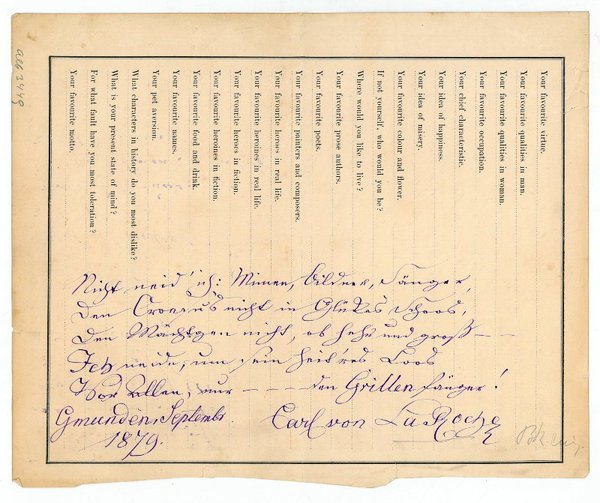 Your favourite virtue.
Your favourite qualities in man.
Your favourite qualities in woman.
Your favourite occupation.
Your chief characteristic.
Your idea of happiness.
Your idea of misery.
Your favourite colour and flower.
If not yourself, who would you be?
Where would you like to live?
Your favourite prose authors.
Your favourite poets.
Your favourite painters and composers.
Your favourite heroes in real life.
Your favourite heroines in real life.
Your favourite heroes in fiction.
Your favourite heroines in fiction.
Your favourite food and drink.
Your favourite names.
Your pet aversion.
What characters in history do you most dislike?
What is your present state of mind?
For what fault have you most toleration?
Your favourite motto.
Nicht neid' ich: Mimen, Bildner, Sänger,
Den Croesus nicht in Glückes Schoos,
Den Mächtgen nicht, ob hehr und groß –
Ich neide, um sein heit'res Loos
Vor Allen, nur – – – den Grillenfänger!
Gmunden, Septemb
1879.
Carl von La Roche